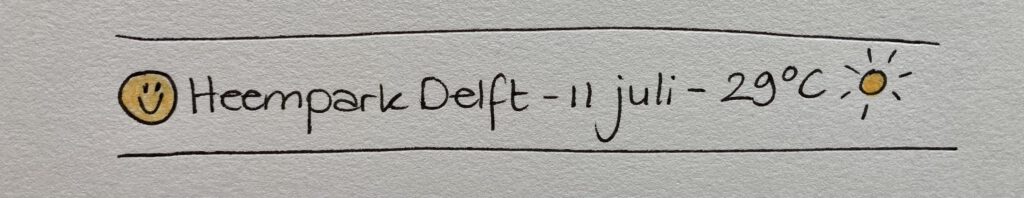 Heempark Delft - 11 juli - 29°C